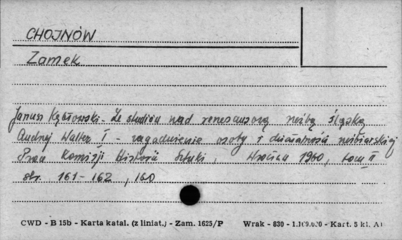 CHOJNÓW
Zamek
Janusz Kębłowski - Ze studiów nad renesansową rzeźbą śląską
Andrzej Walter I - zagadnienie osoby i działalności rzeźbiarskiej
Prace Komisji Historii Sztuki, Wrocław 1960, tom II
str. 161-162, 160
CWD - B 15b - Karta katal. (z liniat.) - Zam. 1623/P Wrak - 830 - Kart. 5 kl. A1